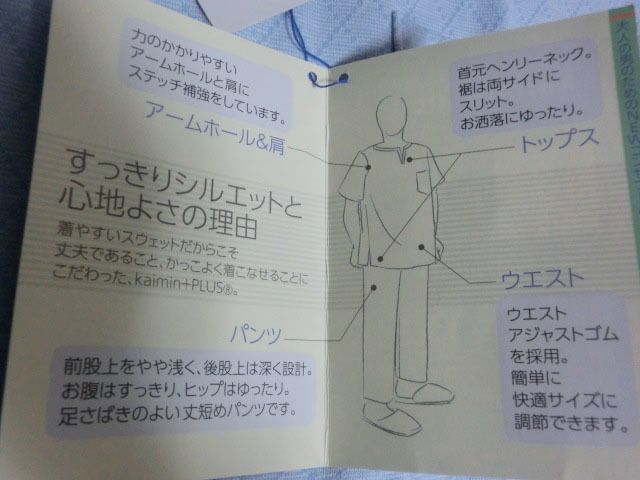 力のかかりやすい
アームホールと肩に
ステッチ補強をしています。
アームホール&肩
すっきりシルエットと
心地よさの理由
着やすいスウェットだからこそ
丈夫であること、かっこよく着こなせることに
こだわった、kaimin+PLUS®。
パンツ
前股上をやや浅く、後股上は深く設計。
お腹はすっきり、ヒップはゆったり。
足さばきのよい丈短めパンツです。
首元ヘンリーネック。
裾は両サイドに
スリット。
お洒落にゆったり。
トップス
ウエスト
ウエスト
アジャストゴム
を採用。
簡単に
快適サイズに
調節できます。
大人の男のための